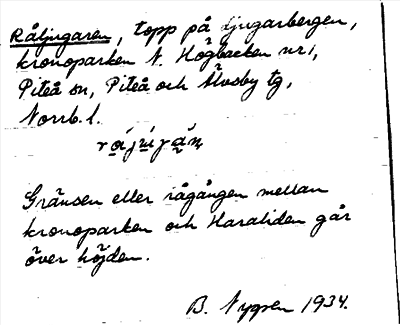 Råljugaren, topp på Ljugarbergen,
kronoparken N. Högbacken nr 1,
Piteå sn, Piteå och Älvsby tg,
Norrb. l.
Gränsen eller rågången mellan
kronoparken och Haraliden går
över höjden.
B. Nygren 1934.